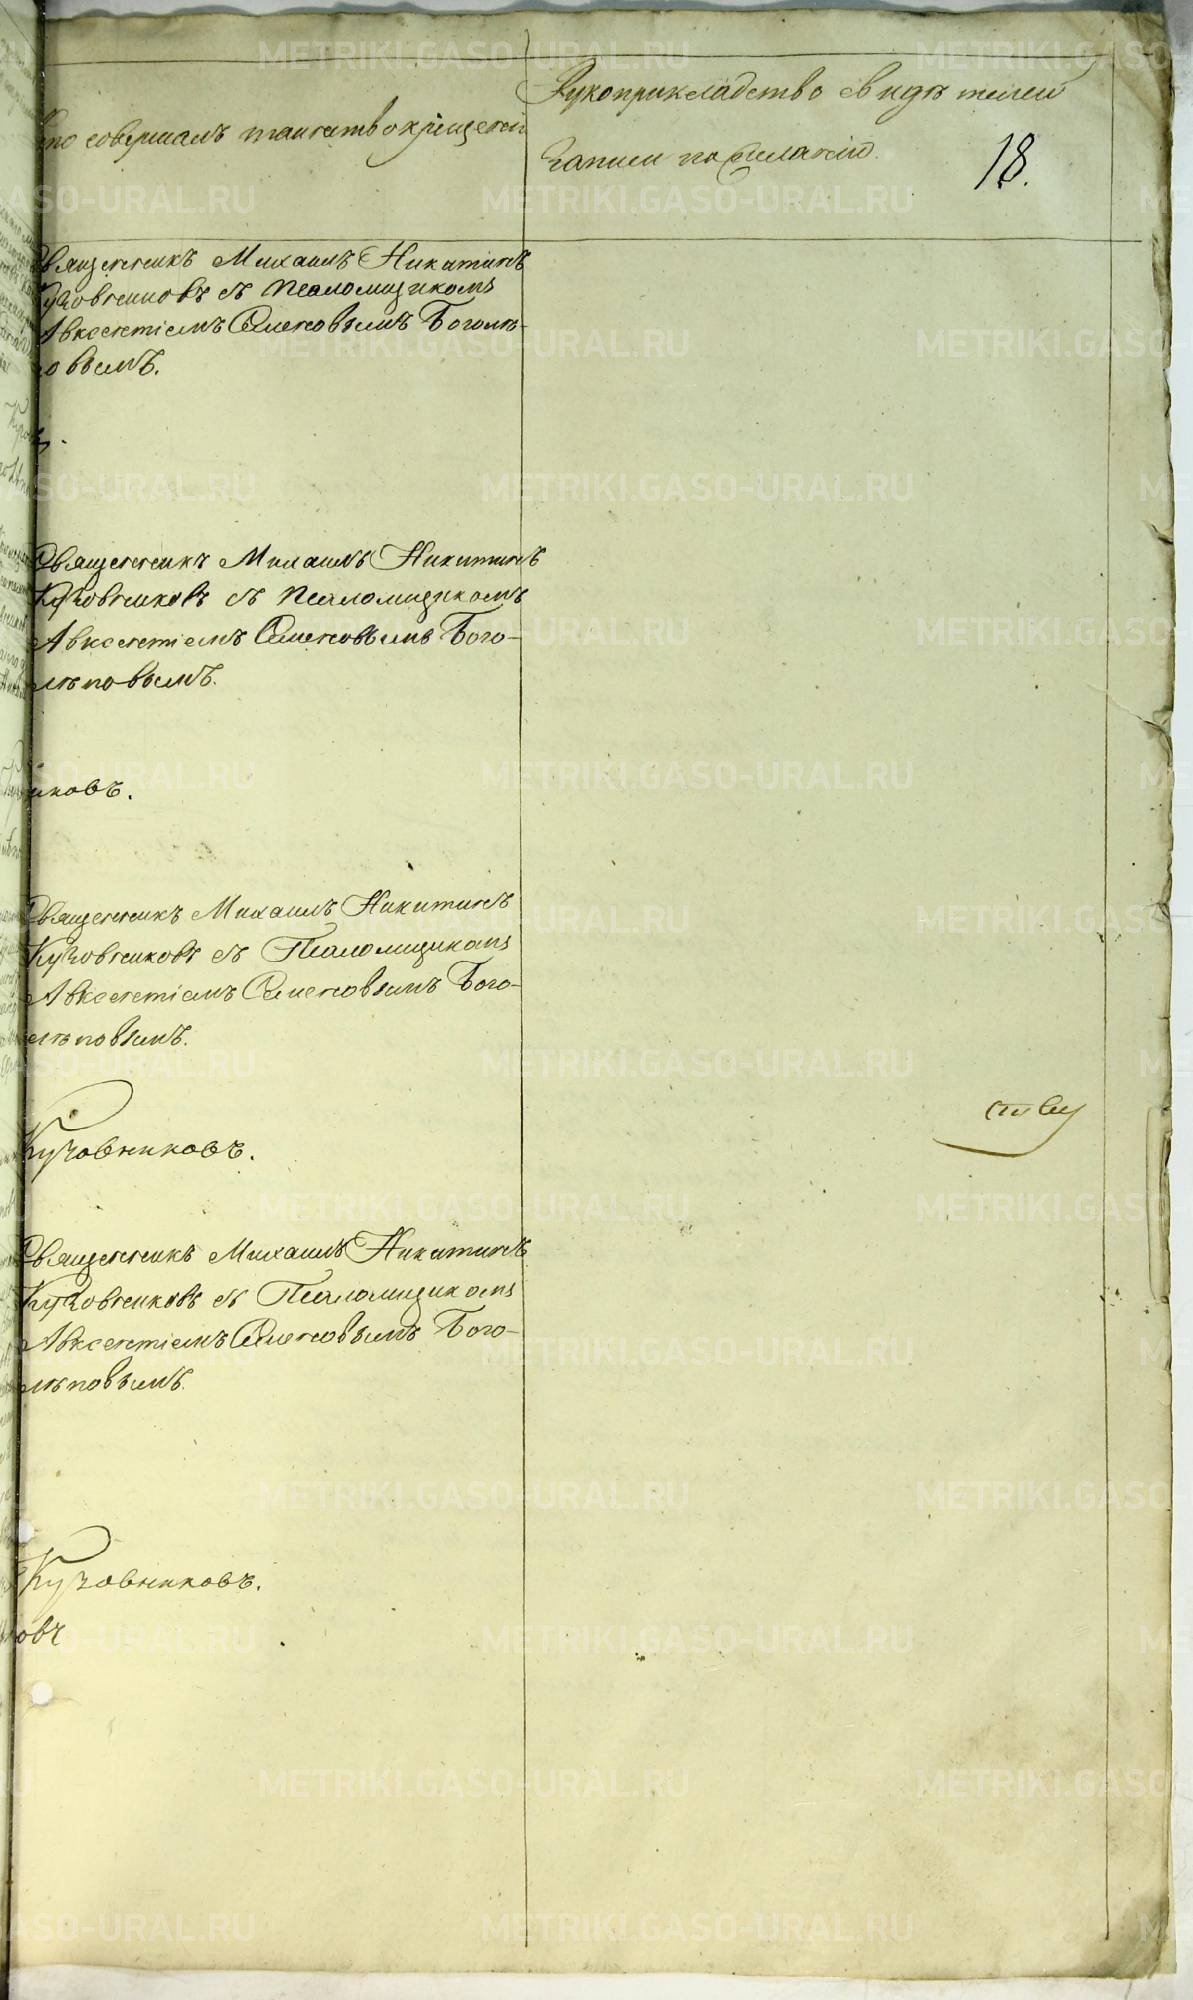 Кто совершалъ таинство крещенія
Рукоприкладство свидѣтелей
записи по желанію.
18.
Священникъ Михаилъ Никитинъ
Кузовниковъ съ псаломщикомъ
Авксентіемъ Семеновымъ Боголѣ-
повымъ.
Священникъ Михаилъ Никитинъ
Кузовниковъ съ псаломщикомъ
Авксентіемъ Семеновымъ Бого-
лѣповымъ.
иковъ.
Священникъ Михаилъ Никитинъ
Кузовниковъ съ Псаломщикомъ
Авксентіемъ Семеновымъ Бого-
лѣповымъ.
Кузовниковъ.
Священникъ Михаилъ Никитинъ
Кузовниковъ съ Псаломщикомъ
Авксентіемъ Семеновымъ Бого-
лѣповымъ.
Кузовниковъ.
овъ
METRIKI.GASO-URAL.RU